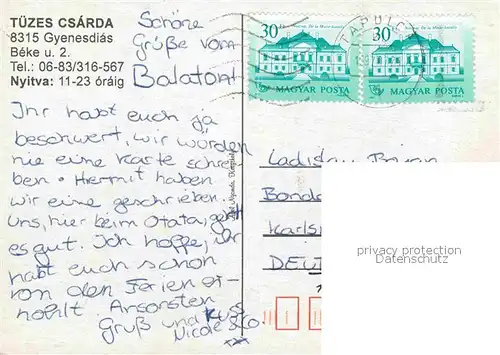 TÜZES CSÁRDA
8315 Gyenesdiás
Béke u. 2.
Tel.: 06-83/316-567
Nyitva: 11-23 óráig
Schöne
Grüße vom
Balaton!
Ihr habt euch ja
beschwert, wir würden
nie eine Karte schrei-
ben. Hiermit haben
wir eine geschrieben.
Uns, hier beim Otata, geht
es gut. Ich hoffe, ihr
habt euch schon
von den Ferien er-
hohlt. Ansorsten
Gruß und Kuss
Nicole & Co.
30 30
MAGYAR POSTA MAGYAR POSTA
TAPOLCA
Ladislav
privacy protection
Datenschutz